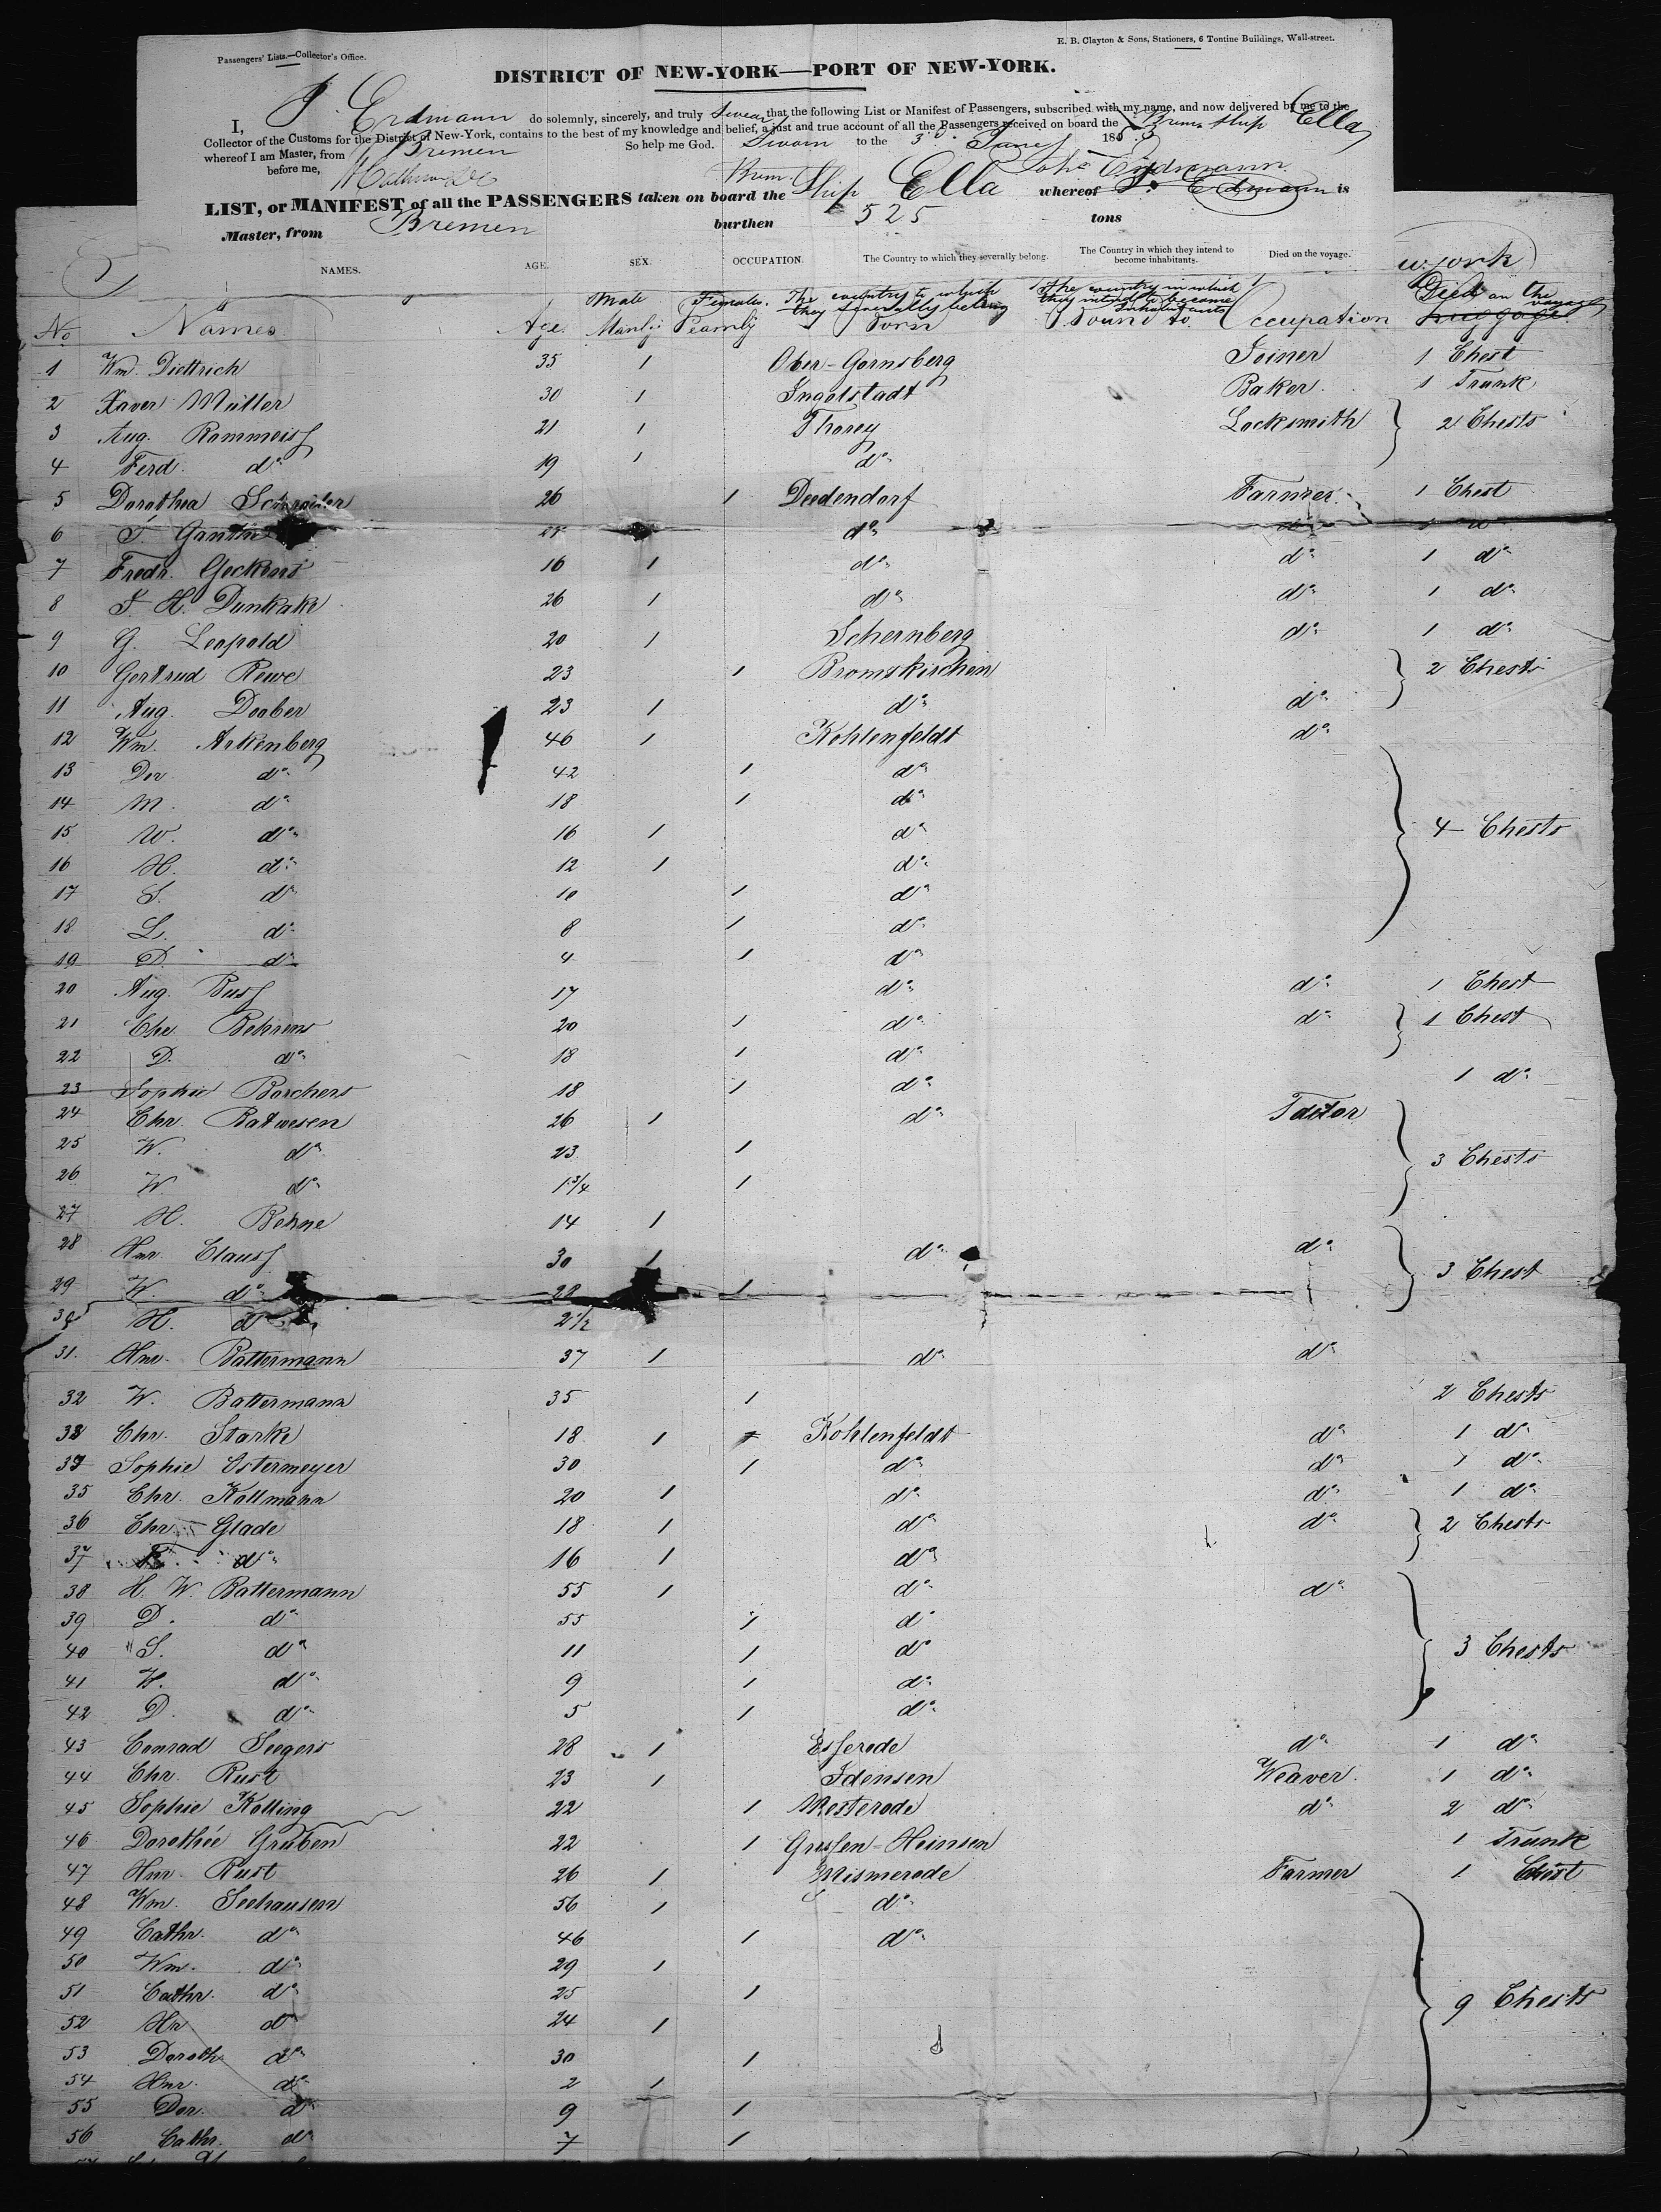 Passengers' Lists.—Collector's Office.
E. B. Clayton & Sons, Stationers, 6 Tontine Buildings, Wall-street.
DISTRICT OF NEW-YORK—PORT OF NEW-YORK.
I, J Erdmann do solemnly, sincerely, and truly Swear that the following List or Manifest of Passengers, subscribed with my name, and now delivered by me to the
Collector of the Customs for the District of New-York, contains to the best of my knowledge and belief, a just and true account of all the Passengers received on board the Brem. Ship Ella
whereof I am Master, from Bremen So help me God. Sworn to the 3d. 185
before me, Erdmann
LIST, or MANIFEST of all the PASSENGERS taken on board the Brem. Ship Ella whereof J. Erdmann is
Master, from Bremen burthen 525 tons
NAMES. AGE. SEX. OCCUPATION. The Country to which they severally belong. The Country in which they intend to become inhabitants. Died on the voyage.
Male Females. The country to which they severally belong The country in which they intend to become Inhabitants Died on the voyage
No Names. Age. Born Bound to Occupation Luggage
1 Wm. Diettrich 35 1 Ober-Gornsberg Joiner 1 Chest
2 Xaver Müller 30 1 Ingolstadt Baker. 1 Trunk
3 Aug. Rommeiss 21 1 Thorey Locksmith 2 Chests
4 Ferd. do 19 1 do
5 Dorothea Schroeder 26 1 Deedendorf Farmer 1 Chest
6 do
7 Fredr. Geckens 16 1 do do 1 do
8 F. H. Dunkake 26 1 do do 1 do
9 G. Leopold 20 1 Schernberg do 1 do
10 Gertrud Rewe 23 1 Bromskirchen 2 Chests
11 Aug. Doober 23 1 do do
12 Wm. Arkenberg 46 1 Kohlenfeldt do
13 Dor. do 42 1 do
14 M. do 18 1 do
15 W. do 16 1 do 4 Chests
16 H. do 12 1 do
17 S. do 10 1 do
18 L. do 8 1 do
19 D. do 4 1 do
20 Aug. Buss 17 do do 1 Chest
21 Chr. Behrens 20 1 do do 1 Chest
22 D. do 18 1 do
23 Sophie Borchers 18 1 do 1 do
24 Chr. Ratwesen 26 1 do
25 W. do 23 1 3 Chests
26 W. do 1 3/4 1
27 H. Behne 14 1
28 Hnr. Clauss 30 1 do do
29 W. do 1 3 Chest
30 H. do 2 1/2
31. Hnr. Battermann 37 1 do do
32 W. Battermann 35 1 2 Chests
33 Chr. Starke 18 1 Kohlenfeldt do 1 do
34 Sophie Ostermeyer 30 1 do do 1 do
35 Chr. Kollmann 20 1 do do 1 do
36 Chr. Glade 18 1 do do 2 Chests
37 F. do 16 1 do
38 H. W. Battermann 55 1 do do
39 D. do 55 1 do
40 S. do 11 1 do 3 Chests
41 W. do 9 1 do
42 D. do 5 1 do
43 Conrad Seegers 28 1 Esserode do 1 do
44 Chr. Rust 23 1 Idensen Weaver. 1 do
45 Sophie Kölling 22 1 Mesterode do 2 do
46 Dorothée Gruben 22 1 Grossen-Heinsen 1 Trunk
47 Hnr. Rust 26 1 Mismerode Farmer 1 Chest
48 Wm. Seehausen 56 1 do
49 Cathr. do 46 1 do
50 Wm. do 29 1
51 Cathr. do 25 1 9 Chests
52 Hr do 24 1
53 Doroth. do 30 1
54 Hnr. do 2 1
55 Dor. do 9 1
56 Cathr. do 7 1